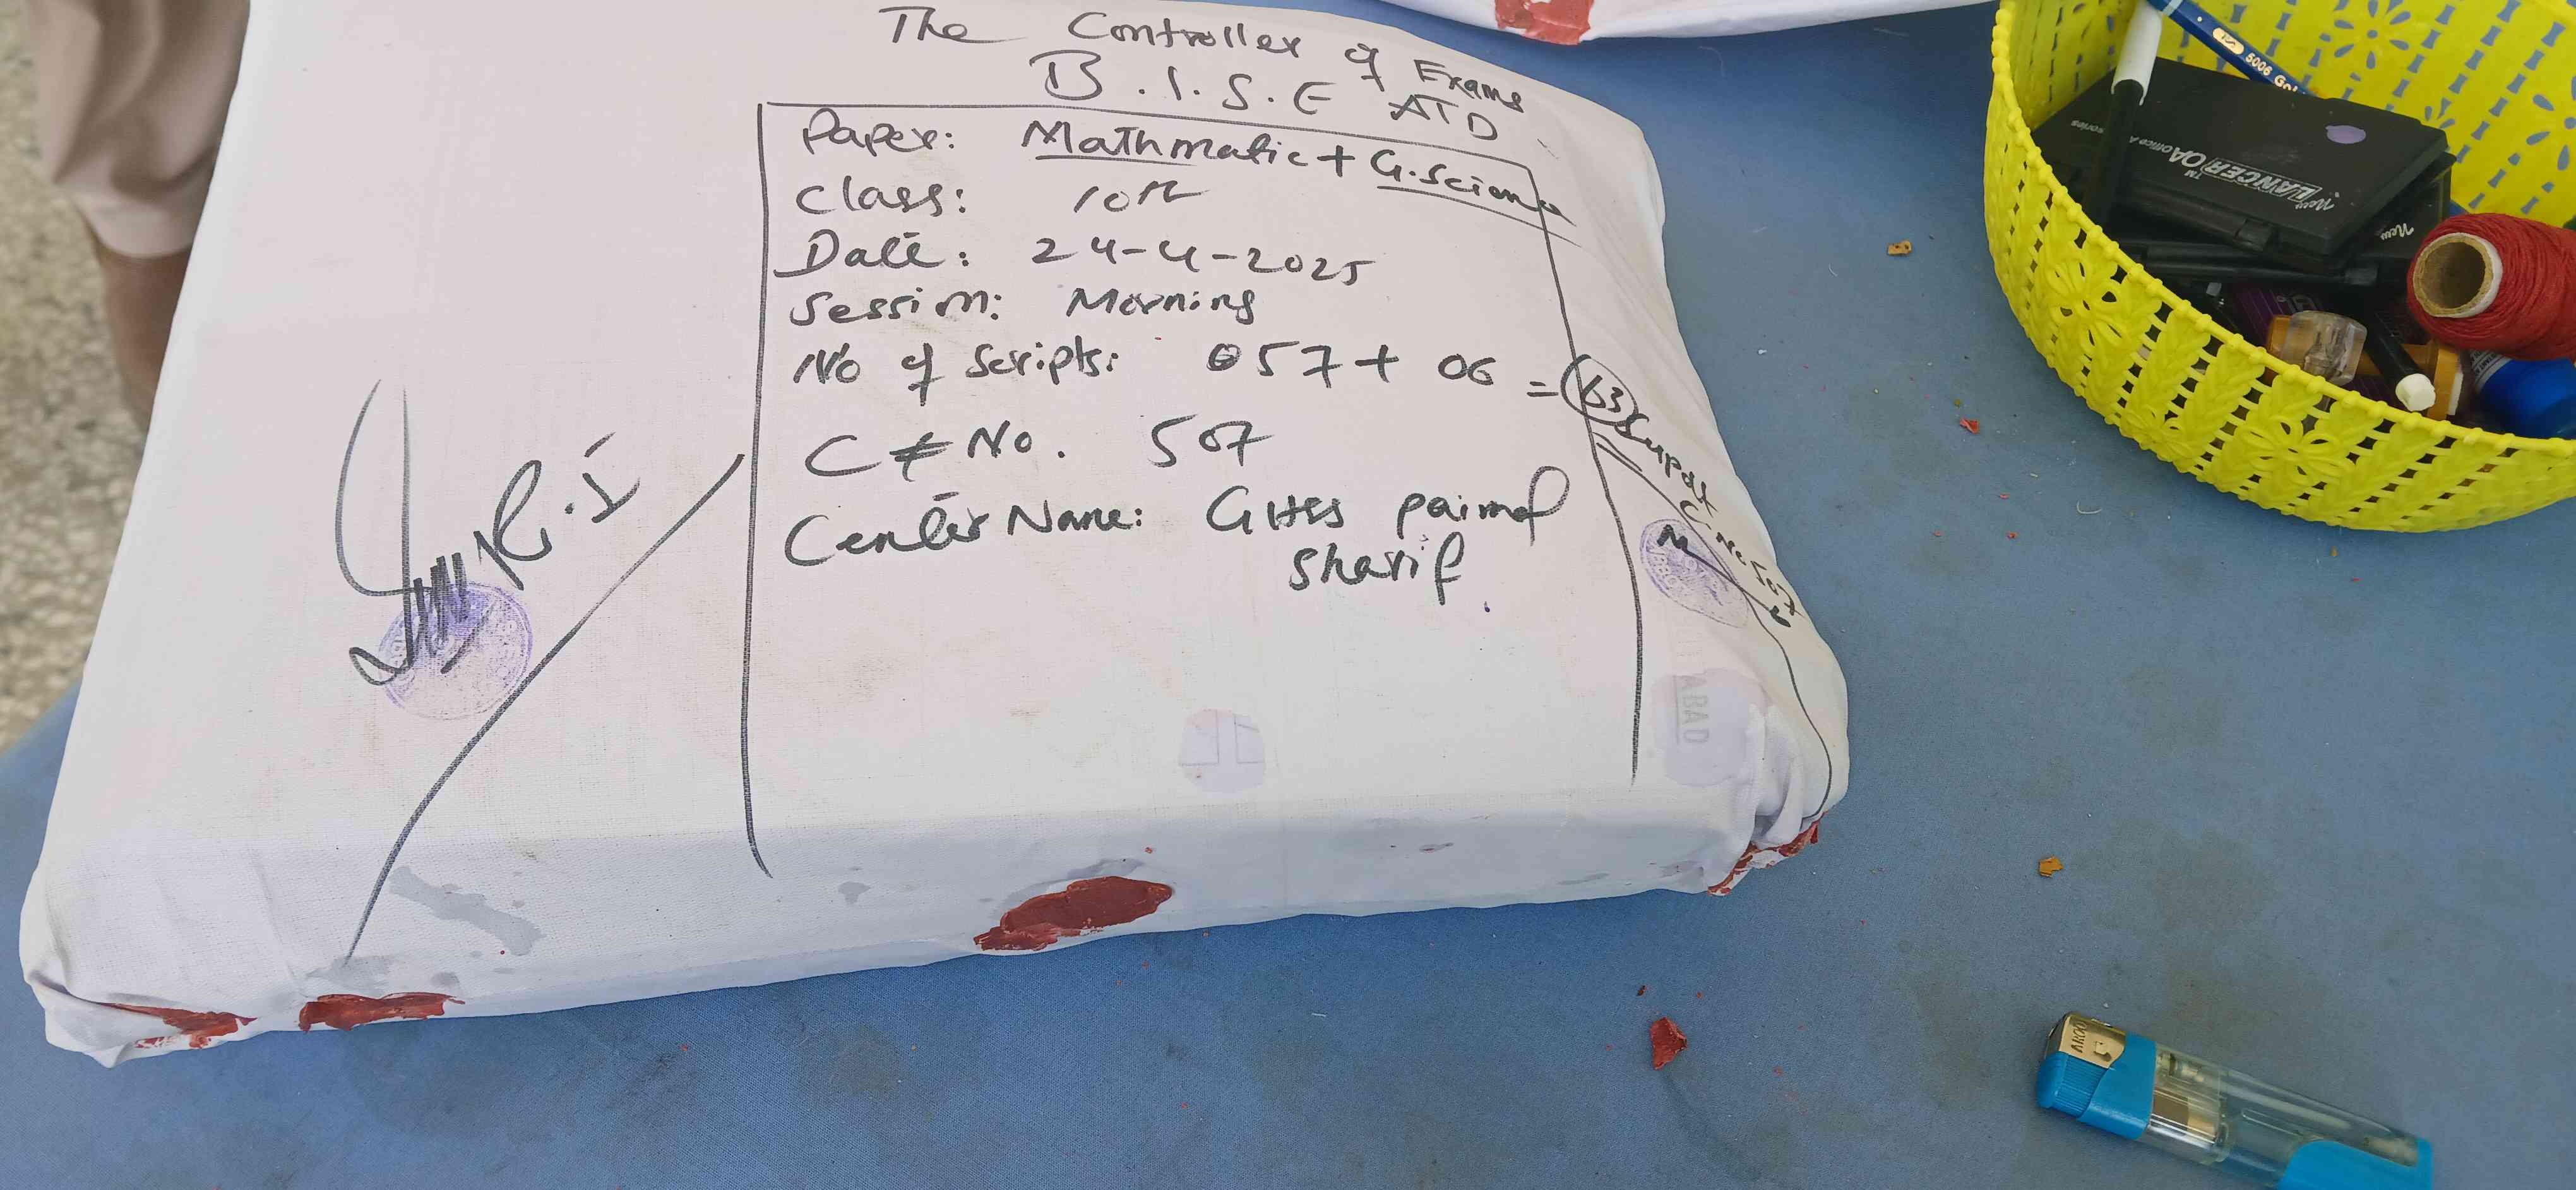 The Controller of Exams
B.I.S.E ATD
Paper: Mathmatic + G.Science
Class: 10th
Date: 24-4-2025
Session: Morning
No of Scripts: 057 + 06 = 63
C # No. 507
Center Name: GHSS
Sharif
R.I
Supdt
C. No 507
ABAD
New
LANCER OA™ office A
series
New
5006 Gol